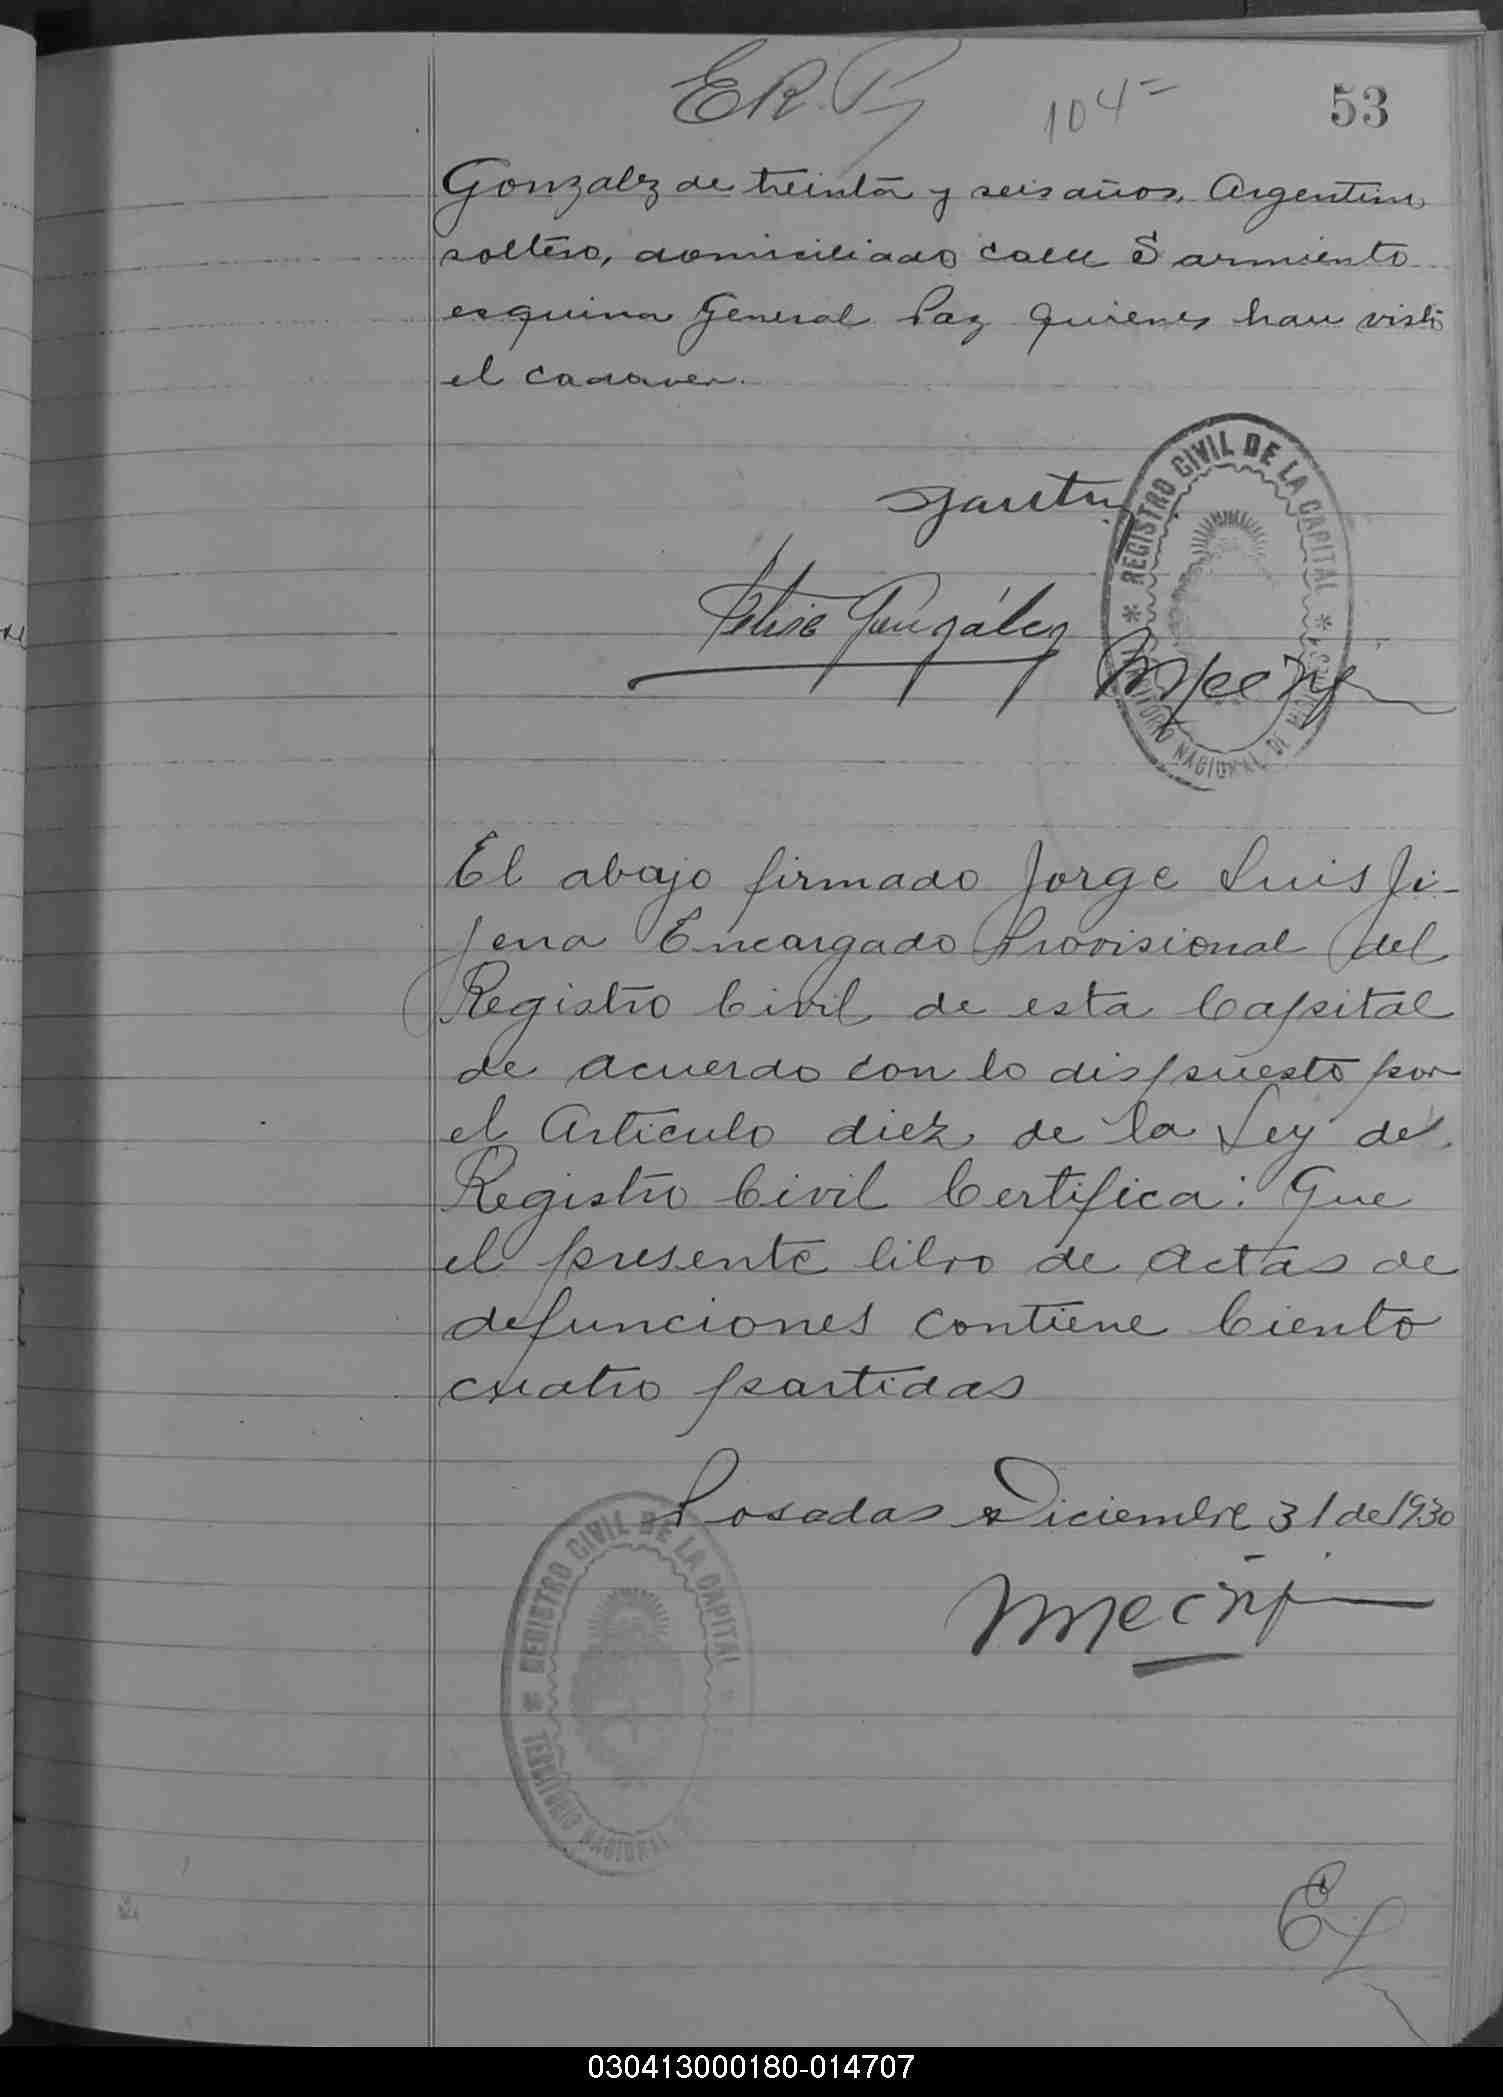 104=
53
Gonzalez de treinta y seis años, Argentino
soltero, domiciliado calle Sarmiento
esquina General Paz quienes han visto
el cadaver.
REGISTRO CIVIL DE LA CAPITAL
TERRITORIO NACIONAL DE MISIONES
González
El abajo firmado Jorge Luis Ji-
jena Encargado Provisional del
Registro Civil de esta Capital
de acuerdo con lo dispuesto por
el Articulo diez de la Ley de
Registro Civil Certifica: Que
el presente libro de actas de
defunciones contiene Ciento
cuatro partidas
Posadas Diciembre 31 de 1930
REGISTRO CIVIL DE LA CAPITAL
TERRITORIO NACIONAL
030413000180-014707